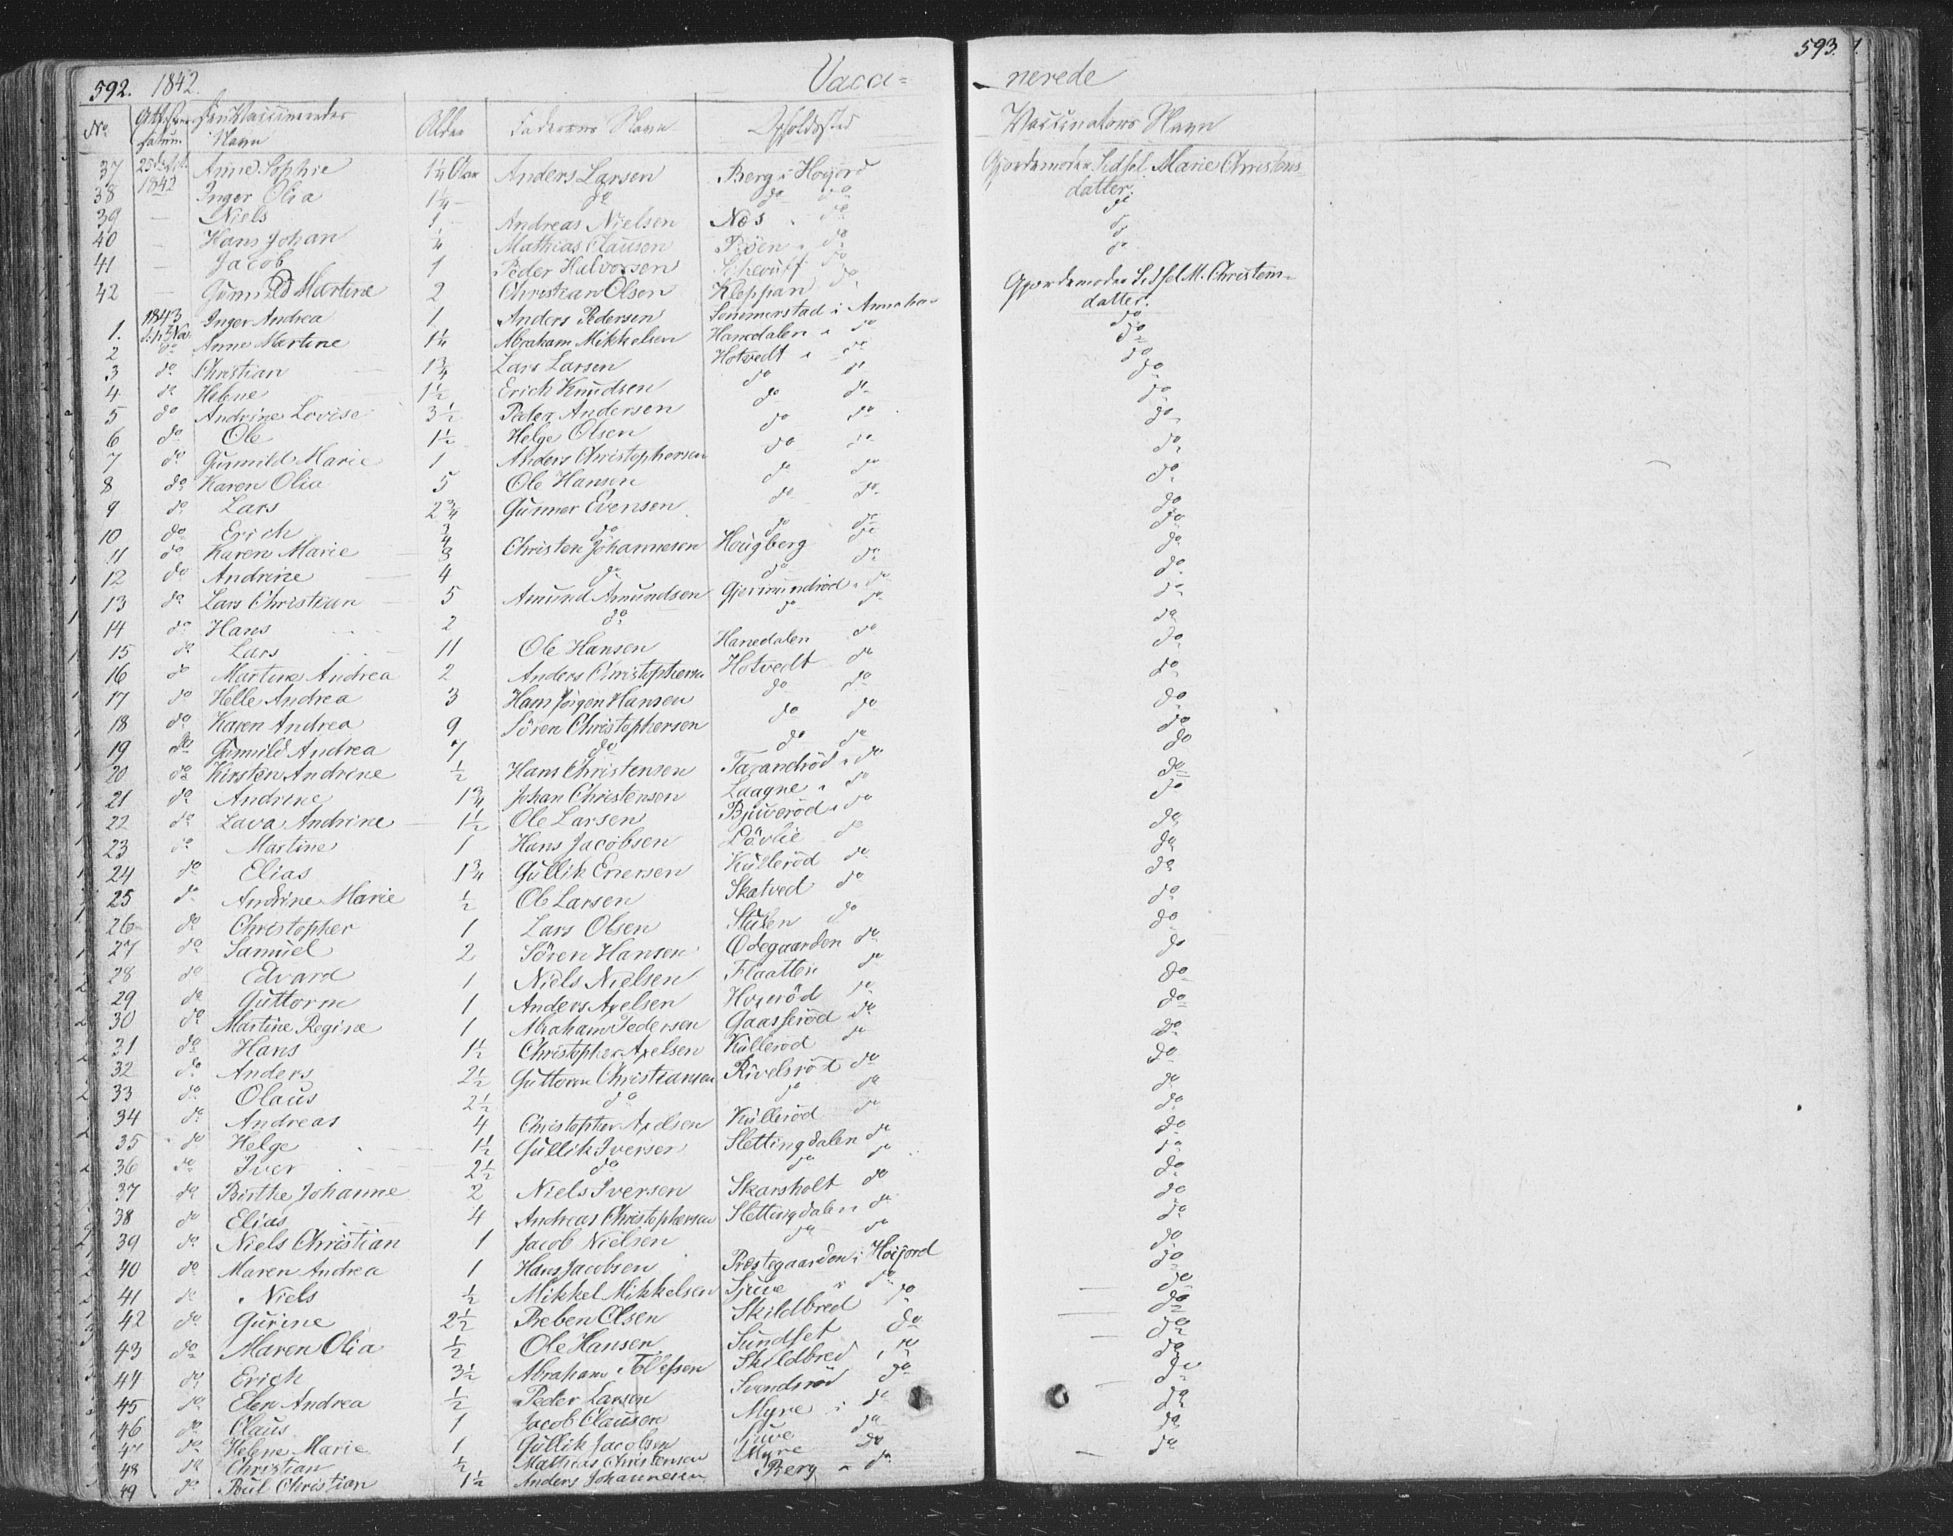 592. 1842. Vacci=
nerede 593.
No Attestens datum Den Vaccineredes Navn Alder Faderens Navn Opholdssted Vaccinators Navn
37 25 Sept. 1842 Anne Sophie 1¼ Anders Larsen Berg i Høijord Gjordemoder Sidsel Marie Christens-
datter.
38 — Inger Olia 1¼ do do do
39 — Niels 1 Andreas Nielsen Nes do do
40 — Hans Johan ¼ Mathias Clausen do do
41 — Jacob 1 Peder Halvorsen do do
42 — Gunnild Martine 2 Christian Olsen Kleppan do Gjordemoder Sidsel M. Christens-
datter.
1843
1. Inger Andrea 1 Anders Pedersen Sommerstad i do
2 do Anne Martine 1¼ Abraham Mikkelsen Hanedalen do do
3 do Christian 1¾ Lars Larsen Hotvedt do do
4 do Helene 1½ Erich Knudsen do do do
5 do Andrine Lovise 3½ Peder Andersen do do do
6 do Ole 1½ Helge Olsen do do do
7 do Gunnild Marie 1 Anders Christophersen do do do
8 do Karen Olia 5 Ole Hansen do do do
9 do Lars 2¾ Gunner Evensen do do do
10 do Erich ¾ do do do do
11 do Karen Marie 3 Christen Johannesen Hougberg do do
12 do Andrine 4 do do do do
13 do Lars Christian 5 Amund Amundsen Gjermundrød do do
14 do Hans 2 do do do do
15 do Lars 11 Ole Hansen Hanedalen do do
16 do Martine Andrea 2 Anders Christophersen Hotvedt do do
17 do Helle Andrea 3 Hans Jörgen Hansen do do do
18 do Karen Andrea 9 Sören Christophersen do do do
19 do Gunnild Andrea 7 do do do do
20 do Kirsten Andrine ½ Hans Christensen do do
21 do Andrine 1¾ Johan Christensen Laagne do do
22 do Lava Andrine 1½ Ole Larsen do do
23 do Martine 1 Hans Jacobsen do do
24 do Elias 1¾ Gullik Enersen Kullerød do do
25 do Andrine Marie ½ Ole Larsen Skatved do do
26 do Christopher 1 Lars Olsen Stulen do do
27 do Samuel 2 Sören Hansen Ødegaarden do do
28 do Edvard 1 Niels Nielsen Flaatten do do
29 do Guttorm 1 Anders Axelsen do do
30 do Martine Regine 1 Abraham Pedersen Gaaserød do do
31 do Hans 1½ Christopher Axelsen Kullerød do do
32 do Anders 2½ Guttorm Christiansen Rivelsrød do do
33 do Olaus 2½ do do do do
34 do Andreas 4 Christopher Axelsen Kullerød do do
35 do Helge 1½ Gullik Iversen Slettingdalen do do
36 do Iver 2½ do do do do
37 do Birthe Johanne 2 Niels Iversen Skarsholt do do
38 do Elias 4 Andreas Christophersen Slettingdalen do do
39 do Niels Christian 1 Jacob Nielsen do do do
40 do Maren Andrea 1 Hans Jacobsen Præstegaarden i Høijord do
41 do Niels ½ Mikkel Mikkelsen Sjue do do
42 do Gurine 2½ Preben Olsen Skildbred do do
43 do Maren Olia ½ Ole Hansen Sundset do do
44 do Erich 3½ Abraham Tollefsen Skildbred do do
45 do Elen Andrea ½ Peder Larsen Svendsrød do do
46 do Claus 1 Jacob Clausen Myre i do do
47 do Helene Marie 1 Gullik Jacobsen Sjuve do do
48 do Christian ½ Mathias Christensen Myre do do
49 do Poul Christian 1½ Anders Johannesen Berg do